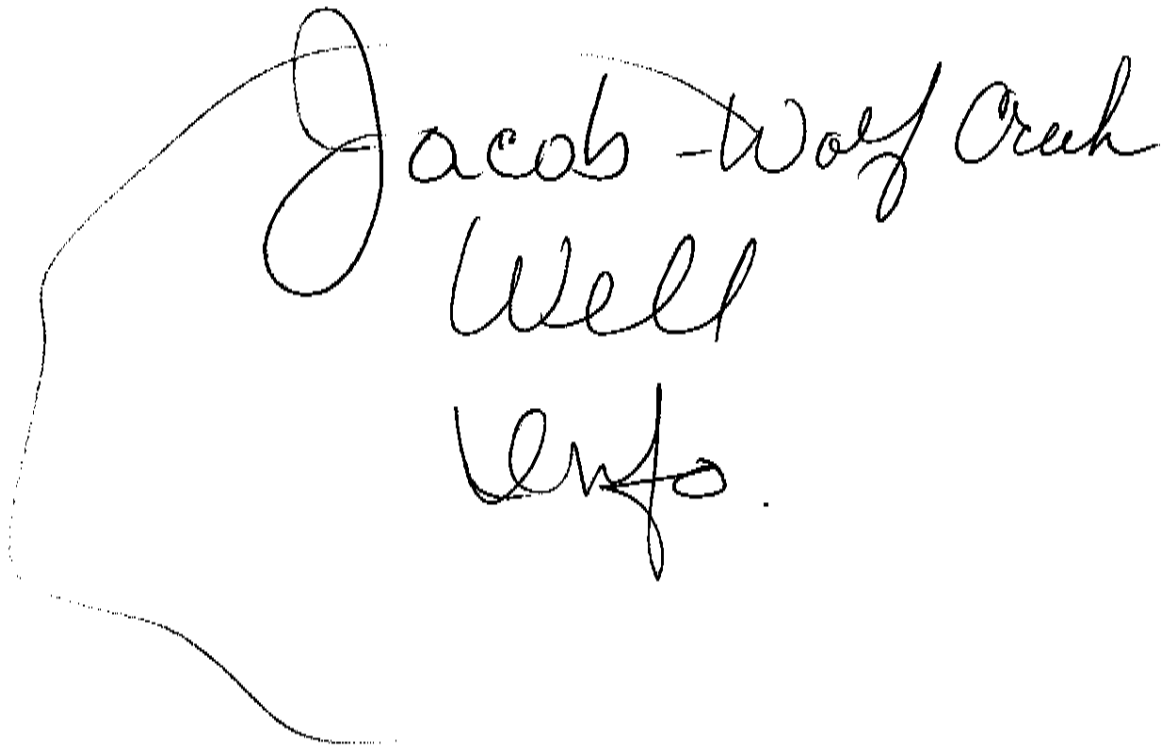 Jacob - Wolf Creek
Well
Info.